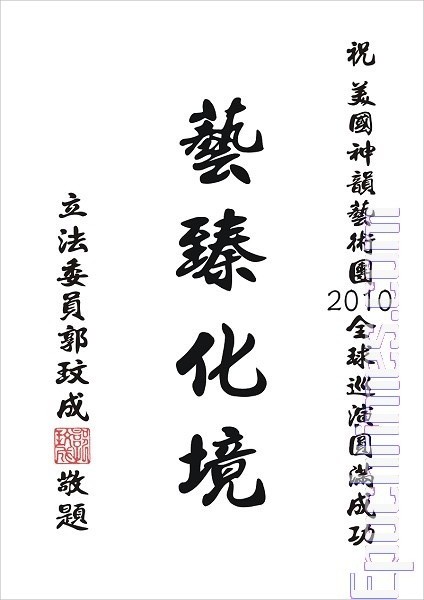 祝 美國神韻藝術團2010全球巡演圓滿成功
藝臻化境
立法委員郭玟成 敬題
郭玟成
Epochtimes.com